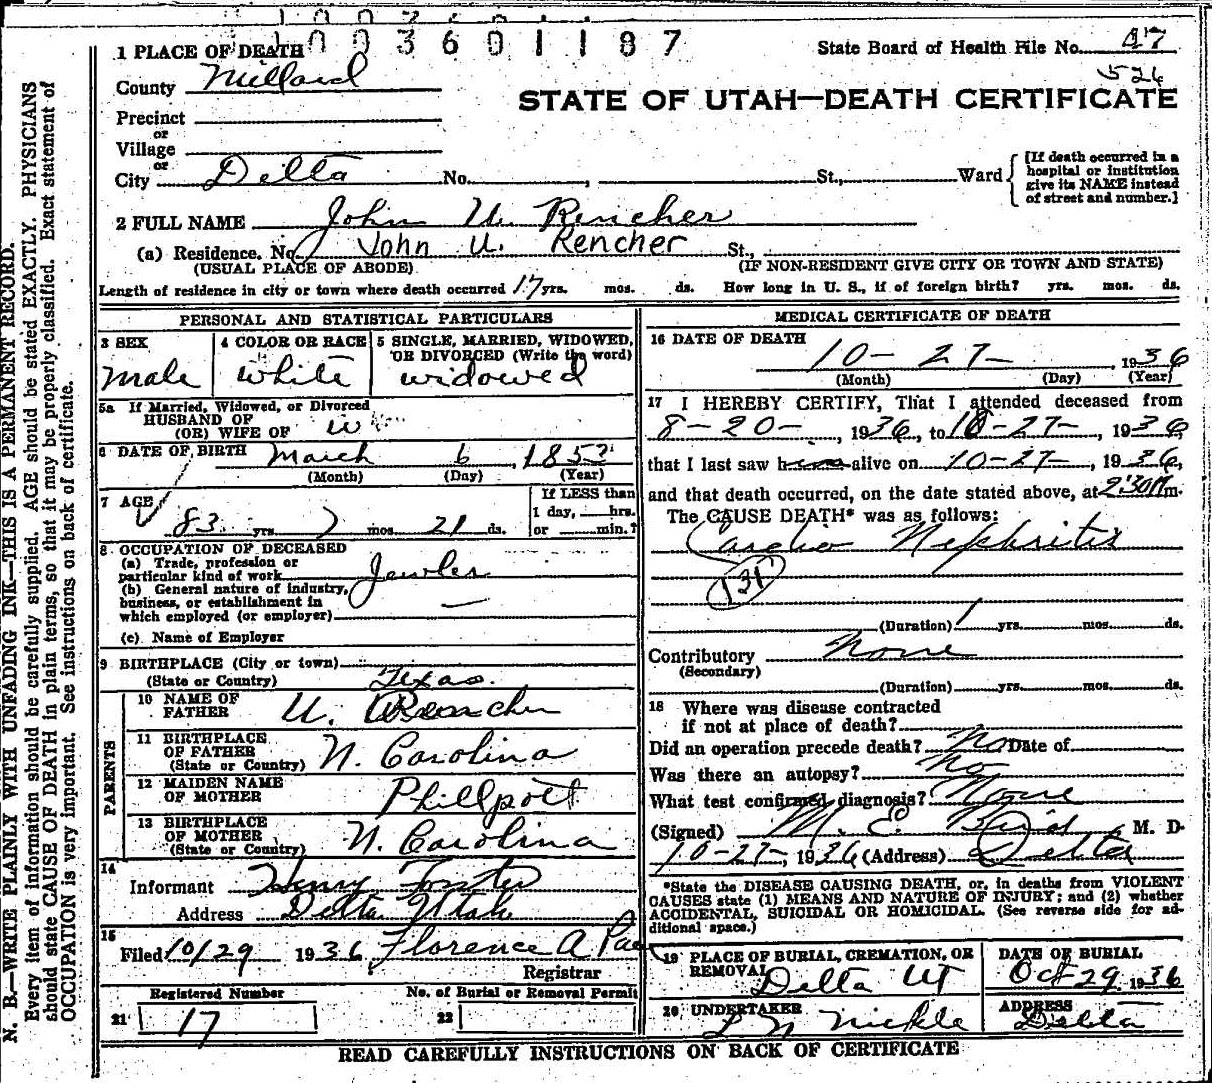 1003601187
State Board of Health File No. 47
526
STATE OF UTAH—DEATH CERTIFICATE
1 PLACE OF DEATH
County Millard
Precinct
or
Village
or
City Delta No. , St., Ward
[If death occurred in a
hospital or institution
give its NAME instead
of street and number.]
2 FULL NAME John U. Rencher
(a) Residence. No. John U. Rencher St.,
(USUAL PLACE OF ABODE) (IF NON-RESIDENT GIVE CITY OR TOWN AND STATE)
Length of residence in city or town where death occurred 17 yrs. mos. ds. How long in U. S., if of foreign birth? yrs. mos. ds.
PERSONAL AND STATISTICAL PARTICULARS
3 SEX
male
4 COLOR OR RACE
white
5 SINGLE, MARRIED, WIDOWED,
OR DIVORCED (Write the word)
widowed
5a If Married, Widowed, or Divorced
HUSBAND OF
(OR) WIFE OF
6 DATE OF BIRTH March 6, 1853
(Month) (Day) (Year)
7 AGE
83 yrs 7 mos 21 ds.
If LESS than
1 day, hrs.
or min.?
8 OCCUPATION OF DECEASED
(a) Trade, profession or
particular kind of work Jewler
(b) General nature of industry,
business, or establishment in
which employed (or employer) —
(c) Name of Employer
9 BIRTHPLACE (City or town)
(State or Country) Texas.
PARENTS
10 NAME OF
FATHER U. Rencher
11 BIRTHPLACE
OF FATHER
(State or Country) N. Carolina
12 MAIDEN NAME
OF MOTHER Phillpott
13 BIRTHPLACE
OF MOTHER
(State or Country) N. Carolina
14
Informant Henry Foster
Address Delta Utah
15
Filed 10/29 1936 Florence A
Registrar
Registered Number
21 17
No. of Burial or Removal Permit
22
MEDICAL CERTIFICATE OF DEATH
16 DATE OF DEATH
10-27-, 1936
(Month) (Day) (Year)
17 I HEREBY CERTIFY, That I attended deceased from
8-20-, 1936, to 10-27-, 1936,
that I last saw him alive on 10-27-, 1936,
and that death occurred, on the date stated above, at 2:30 m.
The CAUSE DEATH* was as follows:
Cardio Nephritis
131
(Duration) 1 yrs. mos. ds.
Contributory None
(Secondary)
(Duration) yrs. mos. ds.
18 Where was disease contracted
if not at place of death?
Did an operation precede death? No Date of
Was there an autopsy? No
What test confirmed diagnosis? None
(Signed) M. E. Bird, M. D.
10-27-, 1936 (Address) Delta
*State the DISEASE CAUSING DEATH, or, in deaths from VIOLENT
CAUSES state (1) MEANS AND NATURE OF INJURY; and (2) whether
ACCIDENTAL, SUICIDAL OR HOMICIDAL. (See reverse side for ad-
ditional space.)
19 PLACE OF BURIAL, CREMATION, OR
REMOVAL
Delta Ut
DATE OF BURIAL
Oct 29, 1936
20 UNDERTAKER
L N Nickle
ADDRESS
Delta
READ CAREFULLY INSTRUCTIONS ON BACK OF CERTIFICATE
N. B.—WRITE PLAINLY WITH UNFADING INK—THIS IS A PERMANENT RECORD.
Every item of information should be carefully supplied. AGE should be stated EXACTLY. PHYSICIANS
should state CAUSE OF DEATH in plain terms, so that it may be properly classified. Exact statement of
OCCUPATION is very important. See instructions on back of certificate.